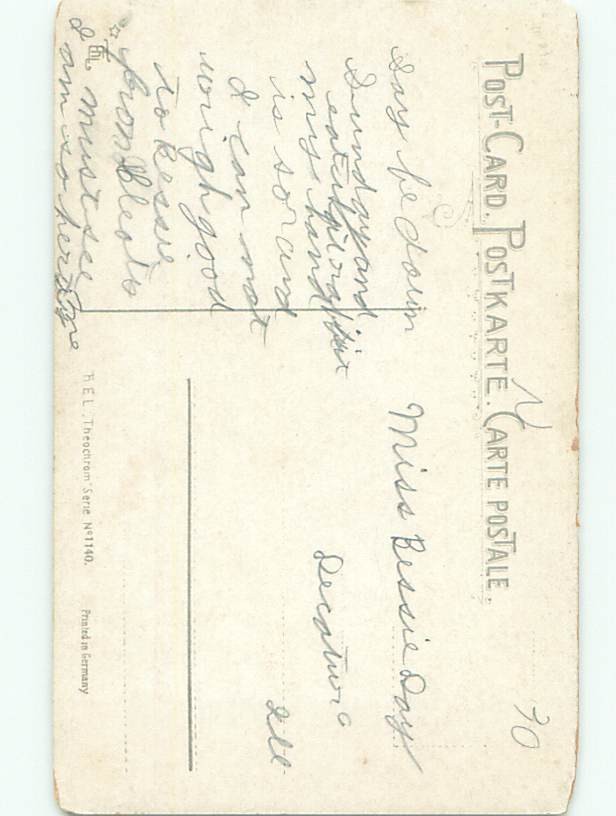 POST-CARD. POSTKARTE. CARTE POSTALE.
Say be down
Sunday and
eat
my hand
is sor and
I can not
wrigh good
to Bessie
from Cleo
I must see
am so
Miss Bessie Day
Decatur
Ill
70
H.E.L. "Theochrom" Serie Nº1140.
Printed in Germany